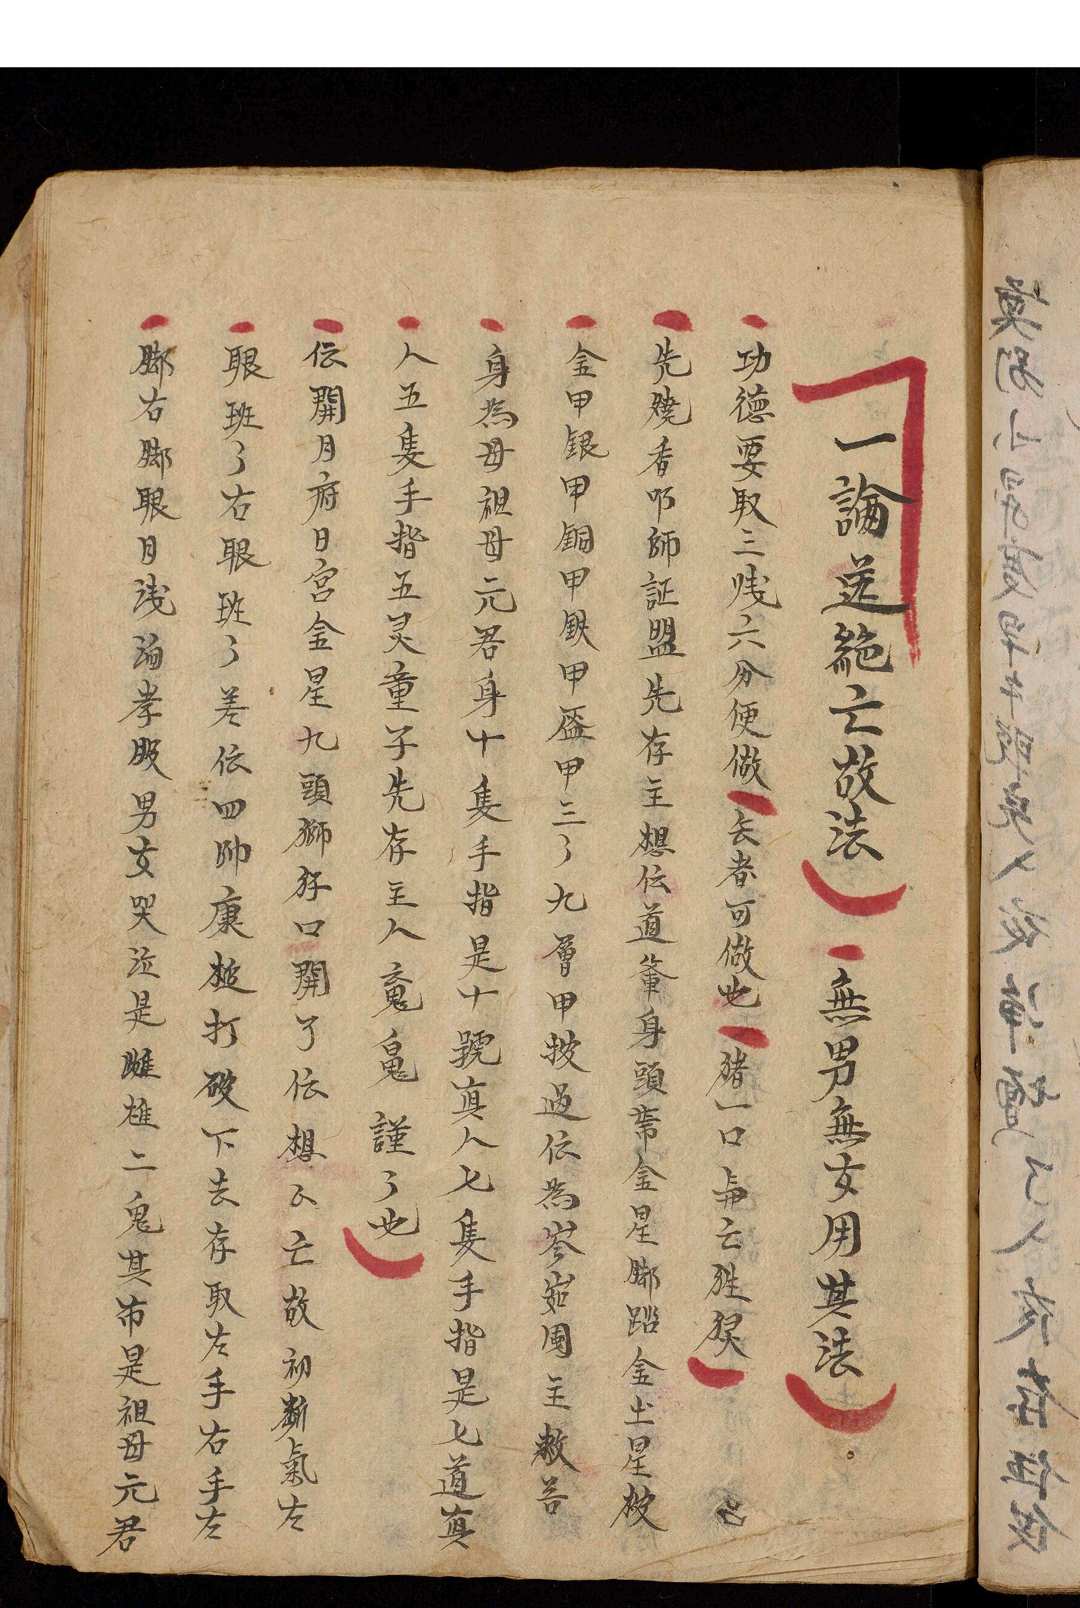 一論送絶亡故法 無男無女用其法
功德要取三㦮六分便做 去者可做也 猪一口 亡牲 已
先燒香叩師証盟先存主想伝道軰身頭帯金星脚踏金土星披
金甲銀甲銅甲鉄甲盔甲三了九層甲披过伝為岺岩囲主救苦
身為母祖母元君身十隻手指是十號真人七隻手指是七道真
人五隻手指五灵童子先存主人䰟魄謹了也
伝開月府日宮金星九頭獅牙口開了伝想么亡故初断氣左
眼班了右眼班了差伝四帅康槌打破下去存取左手右手左
脚右脚眼目浅汤孝服男女哭泣是雌雄二鬼其布是祖母元君